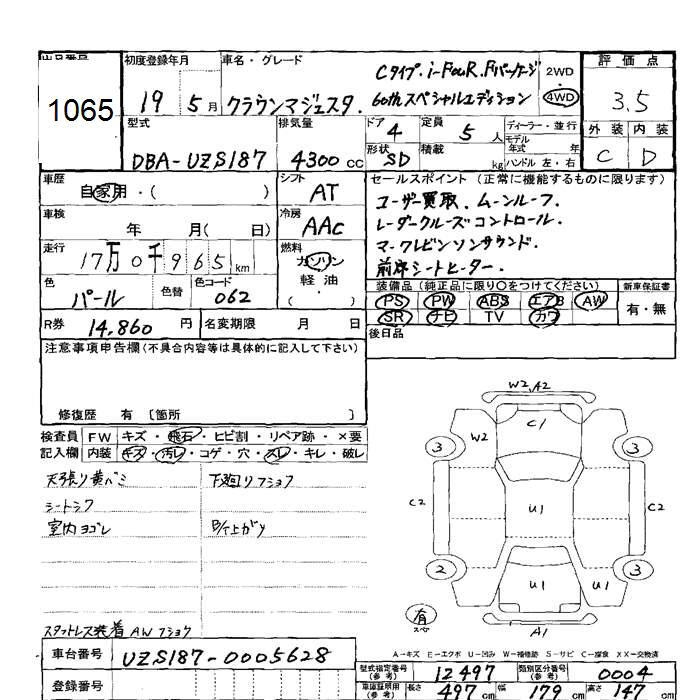 出品番号 1065
初度登録年月 19年 5月
車名・グレード クラウンマジェスタ. Cタイプ. i-FouR. Fパッケージ 60thスペシャルエディション
2WD
4WD
評価点
3.5
外装 内装
C D
型式 DBA-UZS187
排気量 4300cc
ドア 4 定員 5人
形状 SD 積載 kg
ディーラー・並行
モデル年式 年
ハンドル 左・右
車歴 自家用・( )
シフト AT
車検 年 月( 日)
冷房 AAC
走行 17万0千965km
燃料 ガソリン
軽・油
( )
色 パール 色替 色コード 062
R券 14,860円 名変期限 月 日
セールスポイント (正常に機能するものに限ります)
ユーザー買取. ムーンルーフ.
レーダークルーズコントロール.
マークレビンソンサウンド.
前席シートヒーター.
装備品 (純正品に限り○をつけてください) 新車保証書
PS PW ABS エアB AW 有・無
SR ナビ TV カワ
後日品
注意事項申告欄(不具合内容等は具体的に記入して下さい)
修復歴 有 〔箇所 〕
検査員 FW キズ・飛石・ヒビ割・リペア跡・×要
記入欄 内装 キズ・汚レ・コゲ・穴・スレ・キレ・破レ
天張り黄バミ 下廻りフショク
シートシワ
室内ヨゴレ
スタットレス装着 AWフショク
W2,A2
C1
W2
3 3
C2 U1 C2
2 3
U1 U1
有
スペア
A1
A-キズ E-エクボ U-凹み W-補修跡 S-サビ C-腐食 XX-交換済
車台番号 UZS187-0005628
登録番号
型式指定番号(参考) 12497 類別区分番号(参考) 0004
車庫証明用(参考) 長さ 497cm 幅 179cm 高さ 147cm